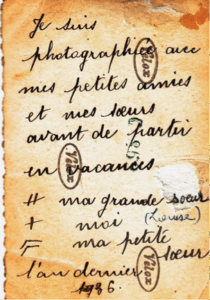 Je suis
photographiée avec
mes petites amies
et mes sœurs
avant de partir
en vacances
# ma grande sœur
+ moi (Louise)
F ma petite
sœur
l'an dernier
1936.
Vilox
Vilox
Vilox